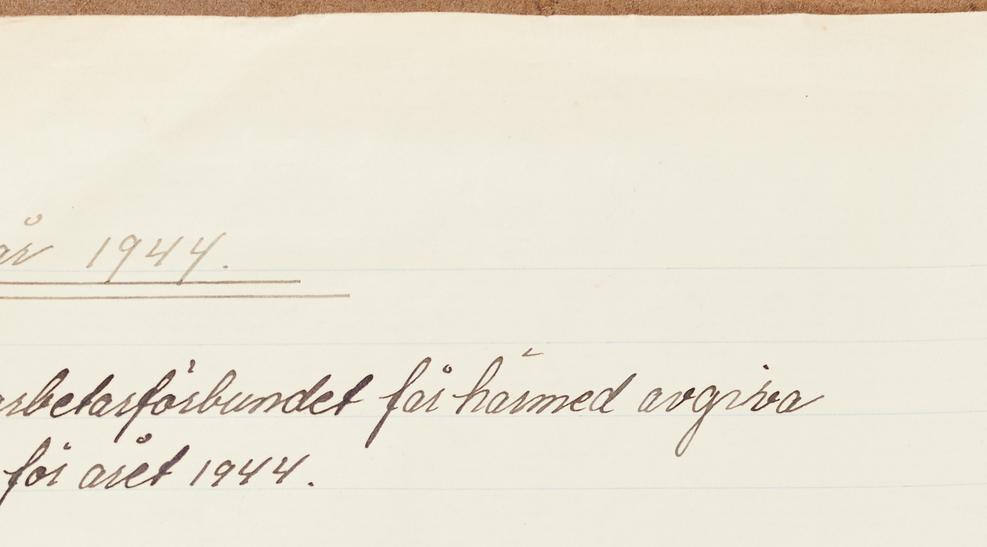 år 1944.
arbetarförbundet får härmed avgiva
för året 1944.